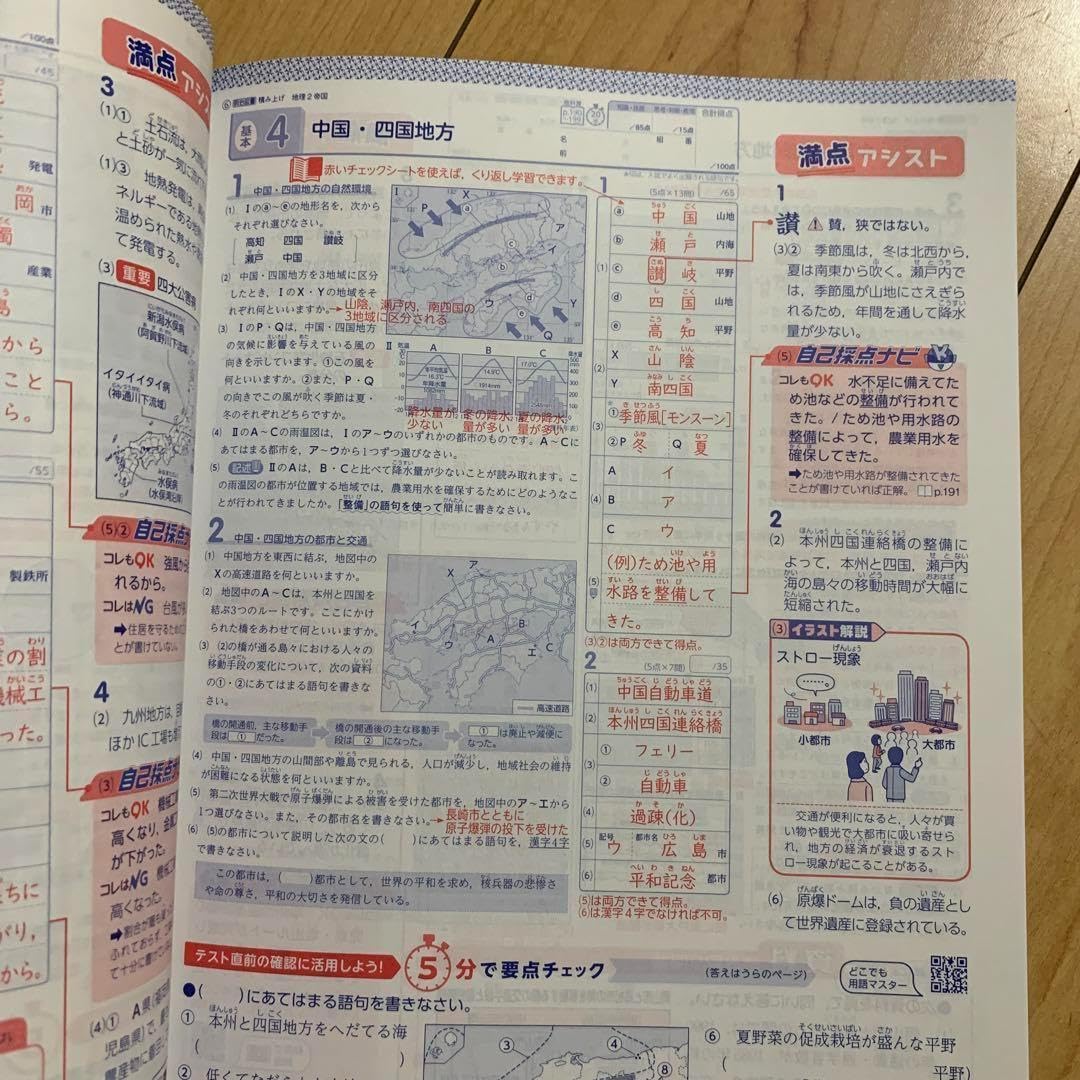 満点 アシス
3
(1)① 土石流は、大
と土砂が一気に流
(1)③ 地熱発電は、
ネルギーである地
温められた熱水や
て発電する。
(3) 重要 四大公害病
新潟水俣病
(阿賀野川下流域)
イタイイタイ病
(神通川下流域)
水俣病
(水俣湾沿岸)
(5)② 自己採点ナ
コレもOK 強風から
れるから。
コレはNG 台風が
➡住居を守るため
とが書けていない
4
(2) 九州地方は,
ほかIC工場も
(3) 自己採点ナ
コレもOK 機械工
高くなり,金属
が下がった。
コレはNG 機械工
高くなった。
➡割合が最も
ふれておらず,
て十分に書けて
(4)① A県(
児島県)で,
農産物に
/100点
/45
発電
岡 市
産業
から
こと
ら。
/55
製鉄所
の割
機械工
った。
ちに
がり,
から。
⑥ 積み上げ 地理2 帝国
基本 4 中国・四国地方
教科書 p.190 ~199
20分
知識・技能 /85点
思考・判断・表現 /15点
合計得点 /100点
組 番
名前
赤いチェックシートを使えば,くり返し学習できます。
1 中国・四国地方の自然環境
(1) Ⅰのⓐ~ⓔの地形名を,次から
それぞれ選びなさい。
高知 四国 讃岐
瀬戸 中国
(2) 中国・四国地方を3地域に区分
したとき,ⅠのX・Yの地域をそ
れぞれ何といいますか。➡山陰,瀬戸内,南四国の
3地域に区分される
(3) ⅠのP・Qは,中国・四国地方
の気候に影響を与えている風の
向きを示しています。①この風を
何といいますか。②また,P・Q
の向きでこの風が吹く季節は夏・
冬のそれぞれどちらですか。
(4) ⅡのA~Cの雨温図は,Ⅰのア~ウのいずれかの都市のものです。A~Cに
あてはまる都市を,ア~ウから1つずつ選びなさい。
(5) 記述 ⅡのAは,B・Cと比べて降水量が少ないことが読み取れます。こ
の雨温図の都市が位置する地域では,農業用水を確保するためにどのようなこ
とが行われてきましたか。「整備」の語句を使って簡単に書きなさい。
Ⅰ P X ⓐ ⓑ ⓒ ⓓ ⓔ ア イ ウ Y Q
Ⅱ 気温 A B C 降水量
年平均気温
16.3℃
年降水量
14.9℃
1914mm
17.0℃
降水量が
少ない
冬の降水
量が多い
夏の降水
量が多い
2 中国・四国地方の都市と交通
(1) 中国地方を東西に結ぶ,地図中の
Xの高速道路を何といいますか。
(2) 地図中のA~Cは,本州と四国を
結ぶ3つのルートです。ここにかけ
られた橋をあわせて何といいますか。
(3) (2)の橋が通る島々における人々の
移動手段の変化について,次の資料
の①・②にあてはまる語句を書きな
さい。
X ア イ ウ A B エ C
高速道路
橋の開通前,主な移動手
段は ① だった。
橋の開通後の主な移動手
段は ② になった。
① は廃止や減便に
なった。
(4) 中国・四国地方の山間部や離島で見られる,人口が減少し,地域社会の維持
が困難になる状態を何といいますか。
(5) 第二次世界大戦で原子爆弾による被害を受けた都市を,地図中のア~エから
1つ選びなさい。また,その都市名を書きなさい。➡長崎市とともに
原子爆弾の投下を受けた
(6) (5)の都市について説明した次の文の( )にあてはまる語句を,漢字4字
で書きなさい。
この都市は,( )都市として,世界の平和を求め,核兵器の悲惨さ
や命の尊さ,平和の大切さを発信している。
1 (5点×13問) /65
(1) ⓐ 中国 山地
ⓑ 瀬戸 内海
ⓒ 讃岐 平野
ⓓ 四国 山地
ⓔ 高知 平野
(2) X 山陰
Y 南四国
(3) ① 季節風[モンスーン]
②P 冬 Q 夏
(4) A イ
B ア
C ウ
(5) (例)ため池や用
水路を整備して
きた。
(3)②は両方できて得点。
2 (5点×7問) /35
(1) 中国自動車道
(2) 本州四国連絡橋
(3) ① フェリー
② 自動車
(4) 過疎(化)
(5) 記号 ウ 都市名 広島 市
(6) 平和記念 都市
(5)は両方できて得点。
(6)は漢字4字でなければ不可。
満点 アシスト
1
讃 ⚠ 賛,狭ではない。
(3)② 季節風は,冬は北西から,
夏は南東から吹く。瀬戸内で
は,季節風が山地にさえぎら
れるため,年間を通して降水
量が少ない。
(5) 自己採点ナビ
コレもOK 水不足に備えてた
め池などの整備が行われて
きた。/ため池や用水路の
整備によって,農業用水を
確保してきた。
➡ため池や用水路が整備されてきた
ことが書けていれば正解。 p.191
2
(2) 本州四国連絡橋の整備に
よって,本州と四国,瀬戸内
海の島々の移動時間が大幅に
短縮された。
(3) イラスト解説
ストロー現象
小都市
大都市
交通が便利になると,人々が買
い物や観光で大都市に吸い寄せら
れ,地方の経済が衰退するスト
ロー現象が起こることがある。
(6) 原爆ドームは,負の遺産とし
て世界遺産に登録されている。
テスト直前の確認に活用しよう! 5分で要点チェック (答えはうらのページ)
どこでも
用語マスター
●( )にあてはまる語句を書きなさい。
① 本州と四国地方をへだてる海
( )
③ ④ ⑧
⑥ 夏野菜の促成栽培が盛んな平野
平野)